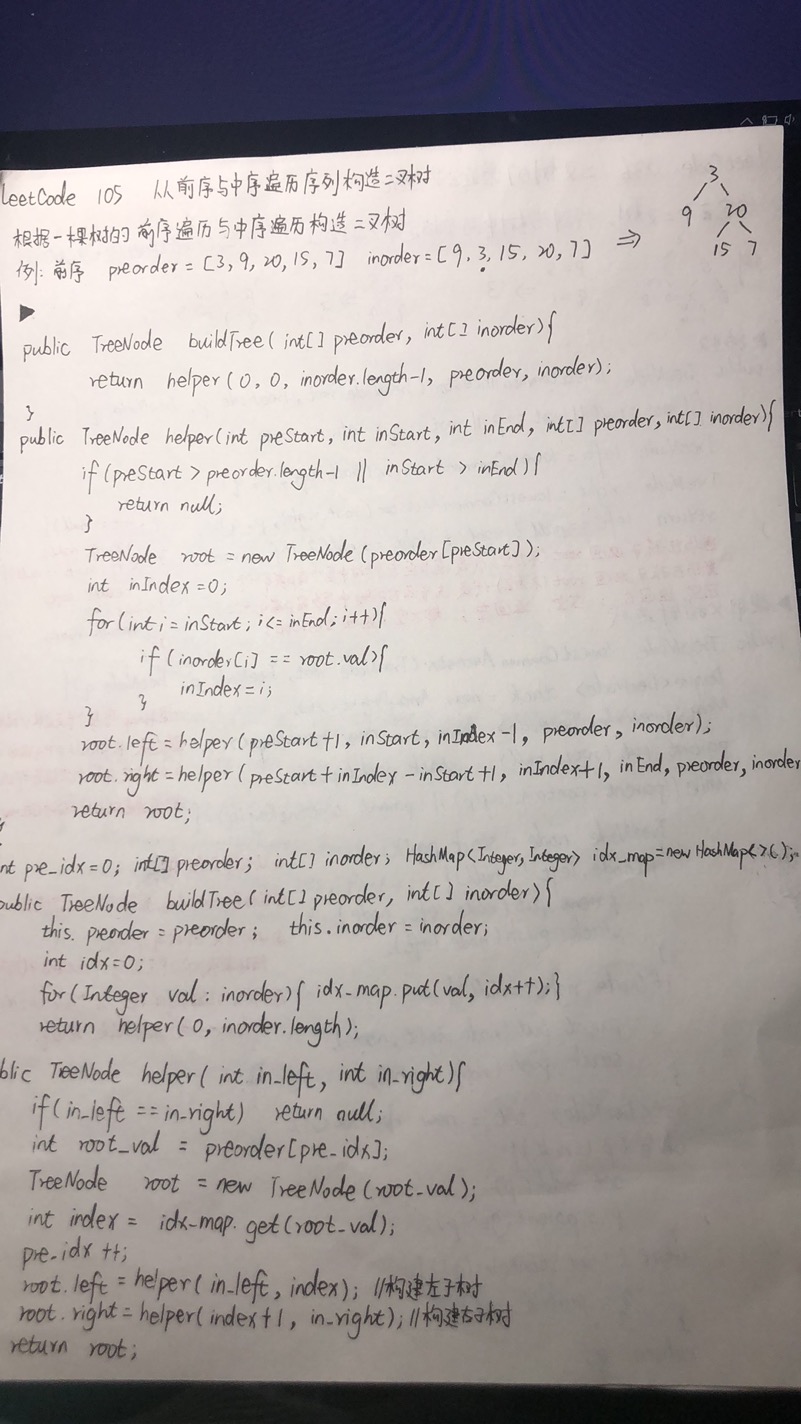 LeetCode 105 从前序与中序遍历序列构造二叉树
根据一棵树的前序遍历与中序遍历构造二叉树
例: 前序 preorder = [3, 9, 20, 15, 7] inorder = [9, 3, 15, 20, 7] ⇒
3
9 20
15 7
public TreeNode buildTree( int[] preorder, int[] inorder){
return helper (0, 0, inorder.length-1, preorder, inorder);
}
public TreeNode helper(int preStart, int inStart, int inEnd, int[] preorder, int[] inorder){
if(preStart > preorder.length-1 || inStart > inEnd){
return null;
}
TreeNode root = new TreeNode(preorder[preStart]);
int inIndex = 0;
for(int i = inStart; i <= inEnd; i++){
if (inorder[i] == root.val){
inIndex = i;
}
}
root.left = helper(preStart+1, inStart, inIndex-1, preorder, inorder);
root.right = helper(preStart + inIndex - inStart+1, inIndex+1, inEnd, preorder, inorder
return root;
}
nt pre_idx=0; int[] preorder; int[] inorder; HashMap<Integer, Integer> idx_map = new HashMap<>();
public TreeNode buildTree( int[] preorder, int[] inorder){
this. preorder = preorder; this. inorder = inorder;
int idx=0;
for(Integer val : inorder){ idx_map.put(val, idx++);}
return helper(0, inorder.length);
blic TreeNode helper( int in_left, int in_right){
if(in_left == in_right) return null;
int root_val = preorder[pre_idx];
TreeNode root = new TreeNode(root_val);
int index = idx_map. get(root_val);
pre_idx ++;
root. left = helper( in_left, index); //构建左子树
root. right = helper(index+1, in_right); //构建右子树
return root;